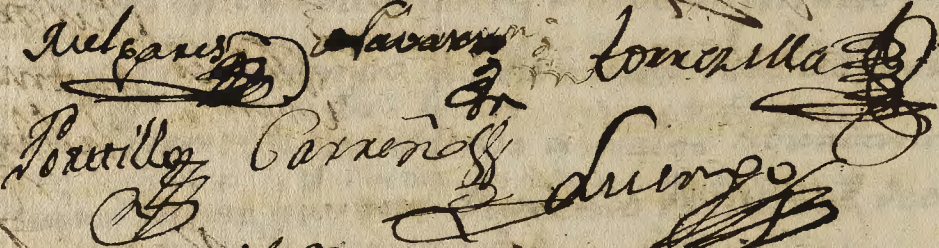 Melgares Navarro torrezilla
Portillo Carreño Luengo